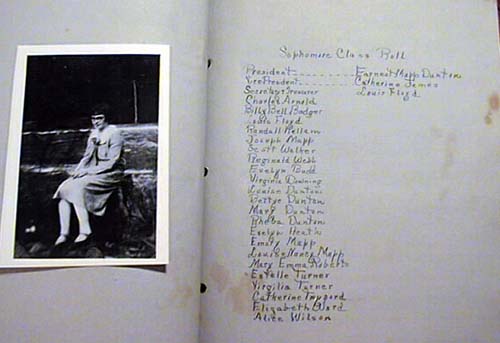 Sophomore Class Roll
President - - - - - - - - Earnest Mapp Dunton
Vice President - - - - - - - Catherine James
Secretary & Treasurer Louis Floyd
Charles Arnold
Billy Bell Badger
Louis Floyd
Randall Kellam
Joseph Mapp
Scott Walker
Reginald Webb
Evelyn Budd
Virginia Downing
Louise Dunton
Bettye Dunton
Mary Dunton
Rhoba Dunton
Evelyn Heath
Emily Mapp
Louise Nancy Mapp
Mary Emma Roberts
Estelle Turner
Virgilia Turner
Catherine Twyford
Elizabeth Ward
Alice Wilson